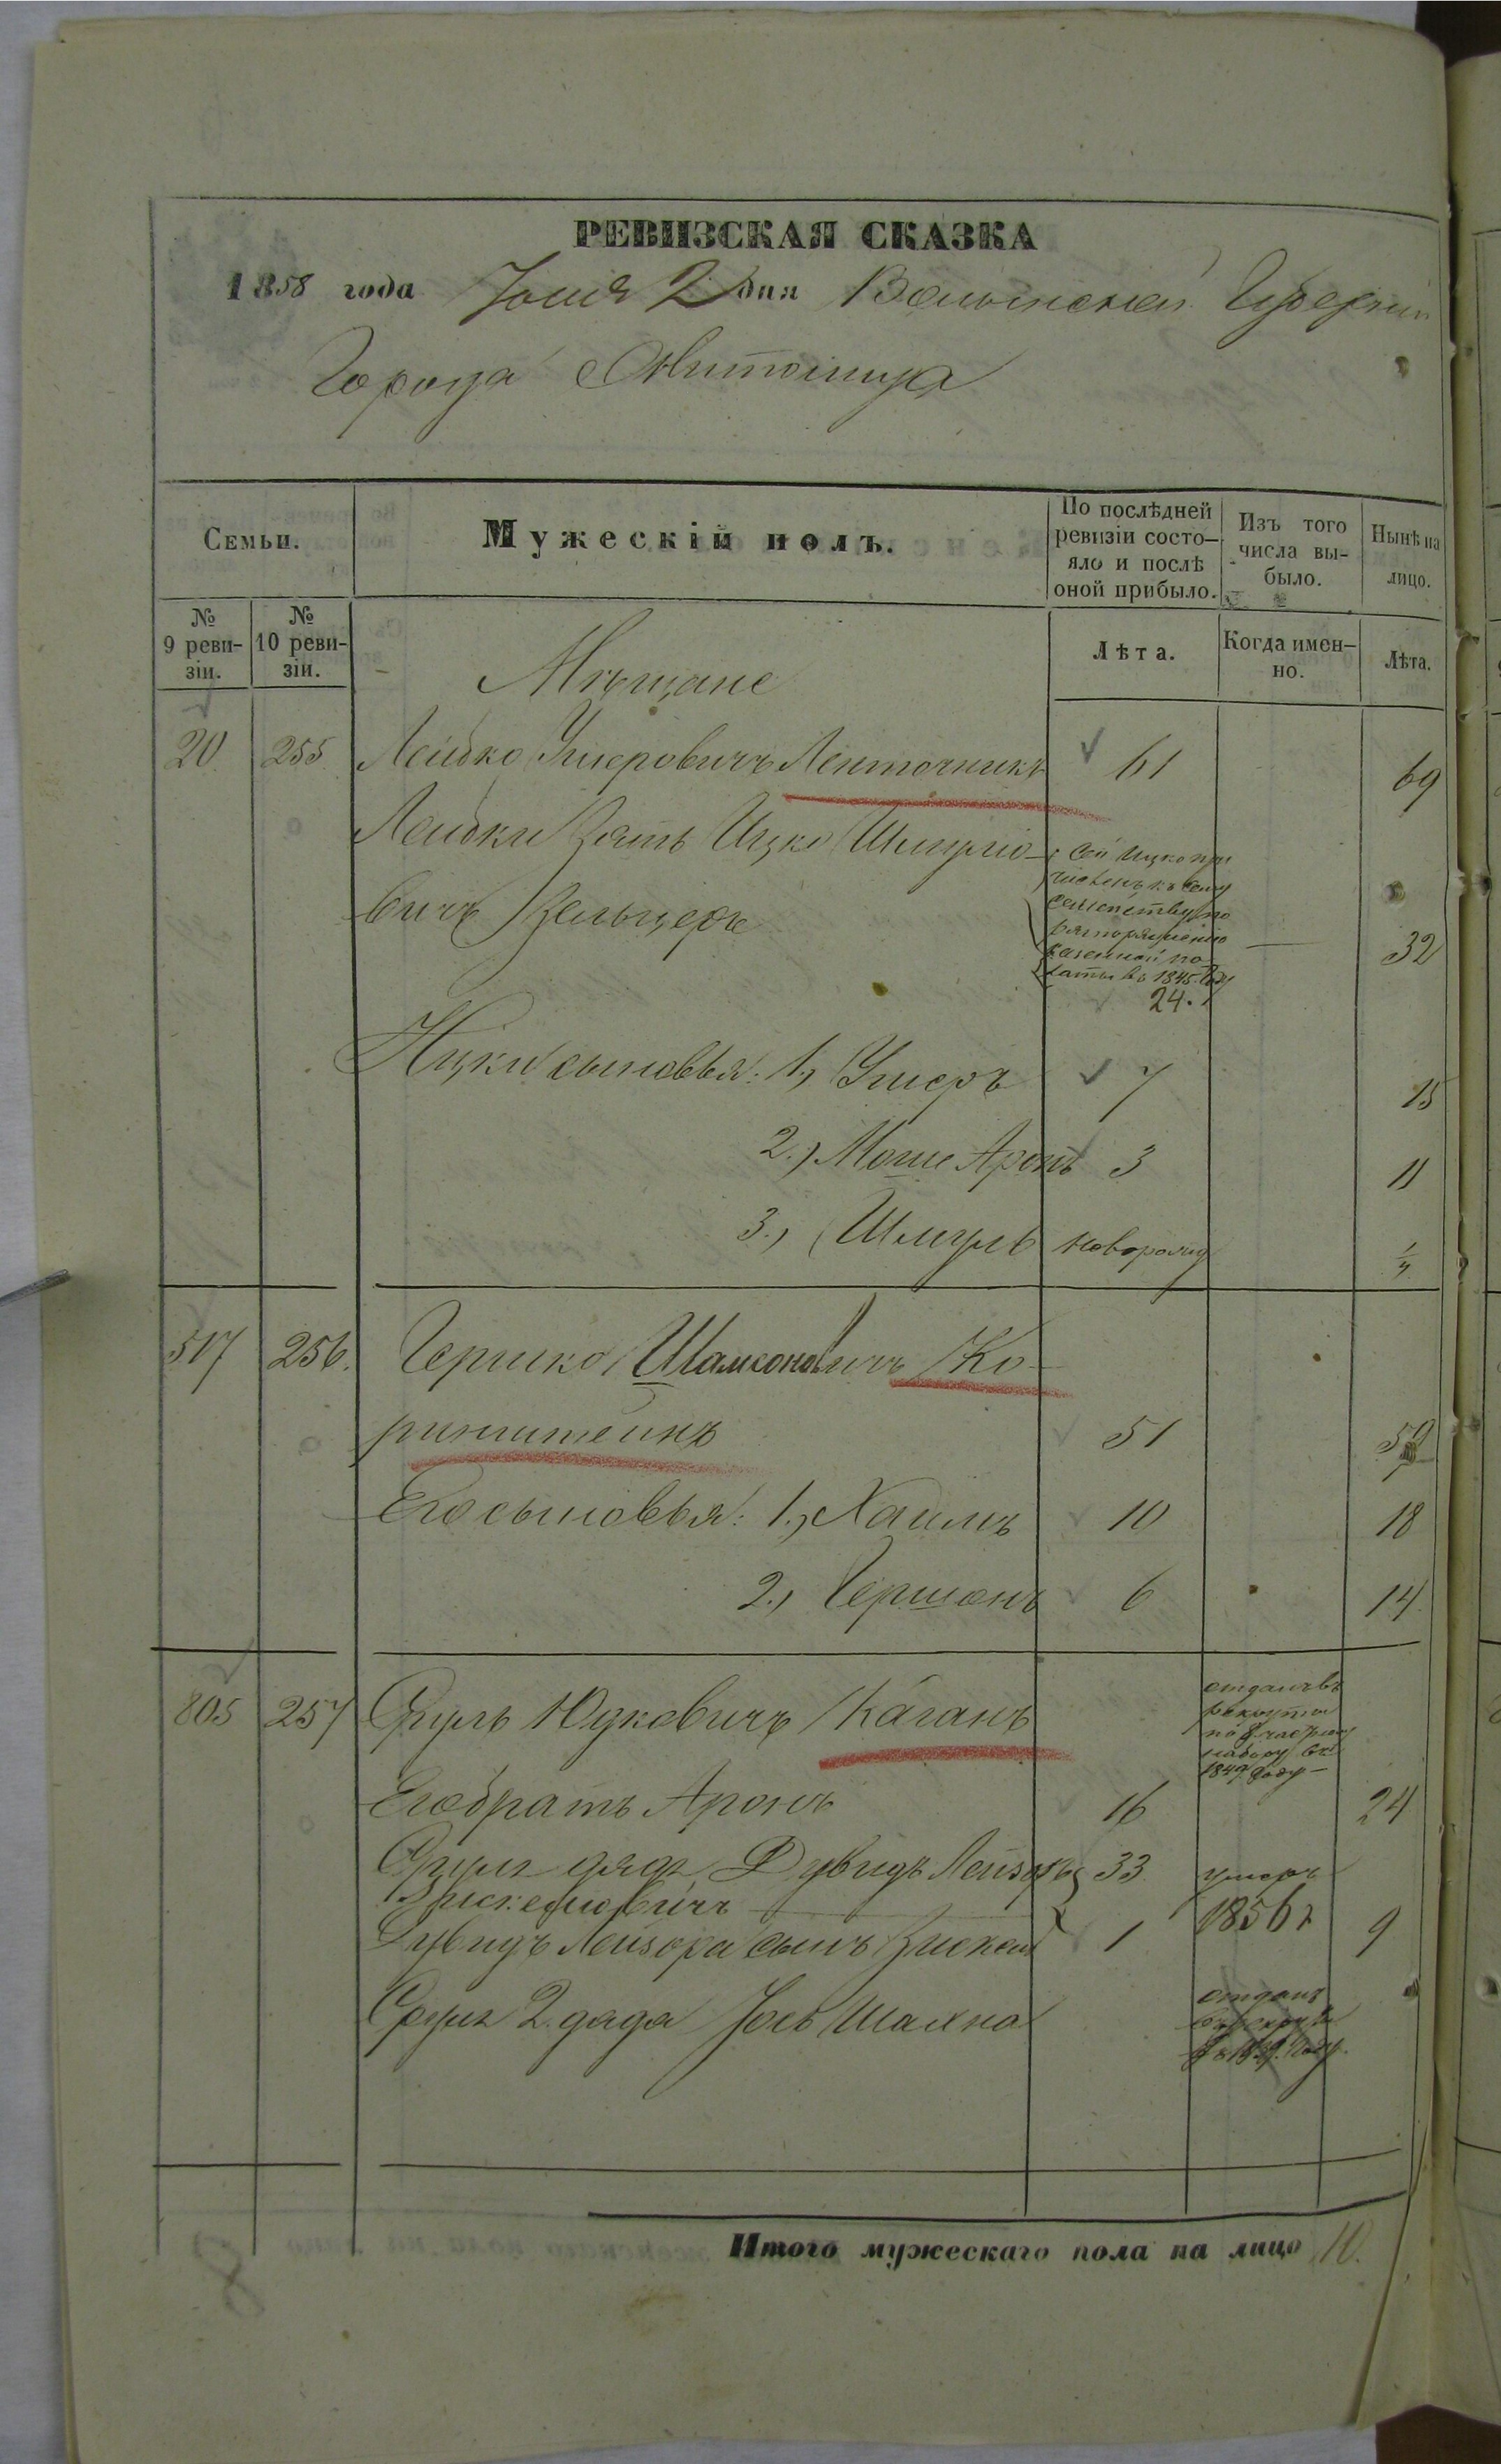 РЕВИЗСКАЯ СКАЗКА
1858 года Июня 2 дня Волынской Губернии
Города Житомира
Семьи.
Мужескій полъ.
По послѣдней ревизіи состо-
яло и послѣ
оной прибыло.
Изъ того
числа вы-
было.
Нынѣ на
лицо.
№
9 реви-
зіи.
№
10 реви-
зіи.
Лѣта.
Когда имен-
но.
Лѣта.
Мѣщане
20 255 Лейбко Умеровичъ Ленточникъ 61 69
Лейбки зять Ицко Шмуліо-
вичъ Зельцеръ 32
сей Ицко при
численъ къ сему
семейству по
распоряженію
казенной па-
латы въ 1845 году
24.
Ицки сыновья: 1.) Умеръ 7 15
2.) Моше Аронъ 3 11
3.) Шмуль новорожд
517 256. Гершко Шамсоновичъ Ко-
ринштейнъ 51 59
Его сыновья: 1.) Хаимъ 10 18
2.) Гершонъ 6 14
805 257 Сруль Юдковичъ Каганъ
отданъ въ
рекруты
по частному
набору въ
1849 году
Его братъ Аронъ 16 24
Сруля дядя Дувидъ Лейзоръ 33 умеръ
1856 г
Дувидъ Лейзора сынъ 1 9
Сруля 2. дядя Іось Шахна
отданъ
Итого мужескаго пола на лицо 10.
8